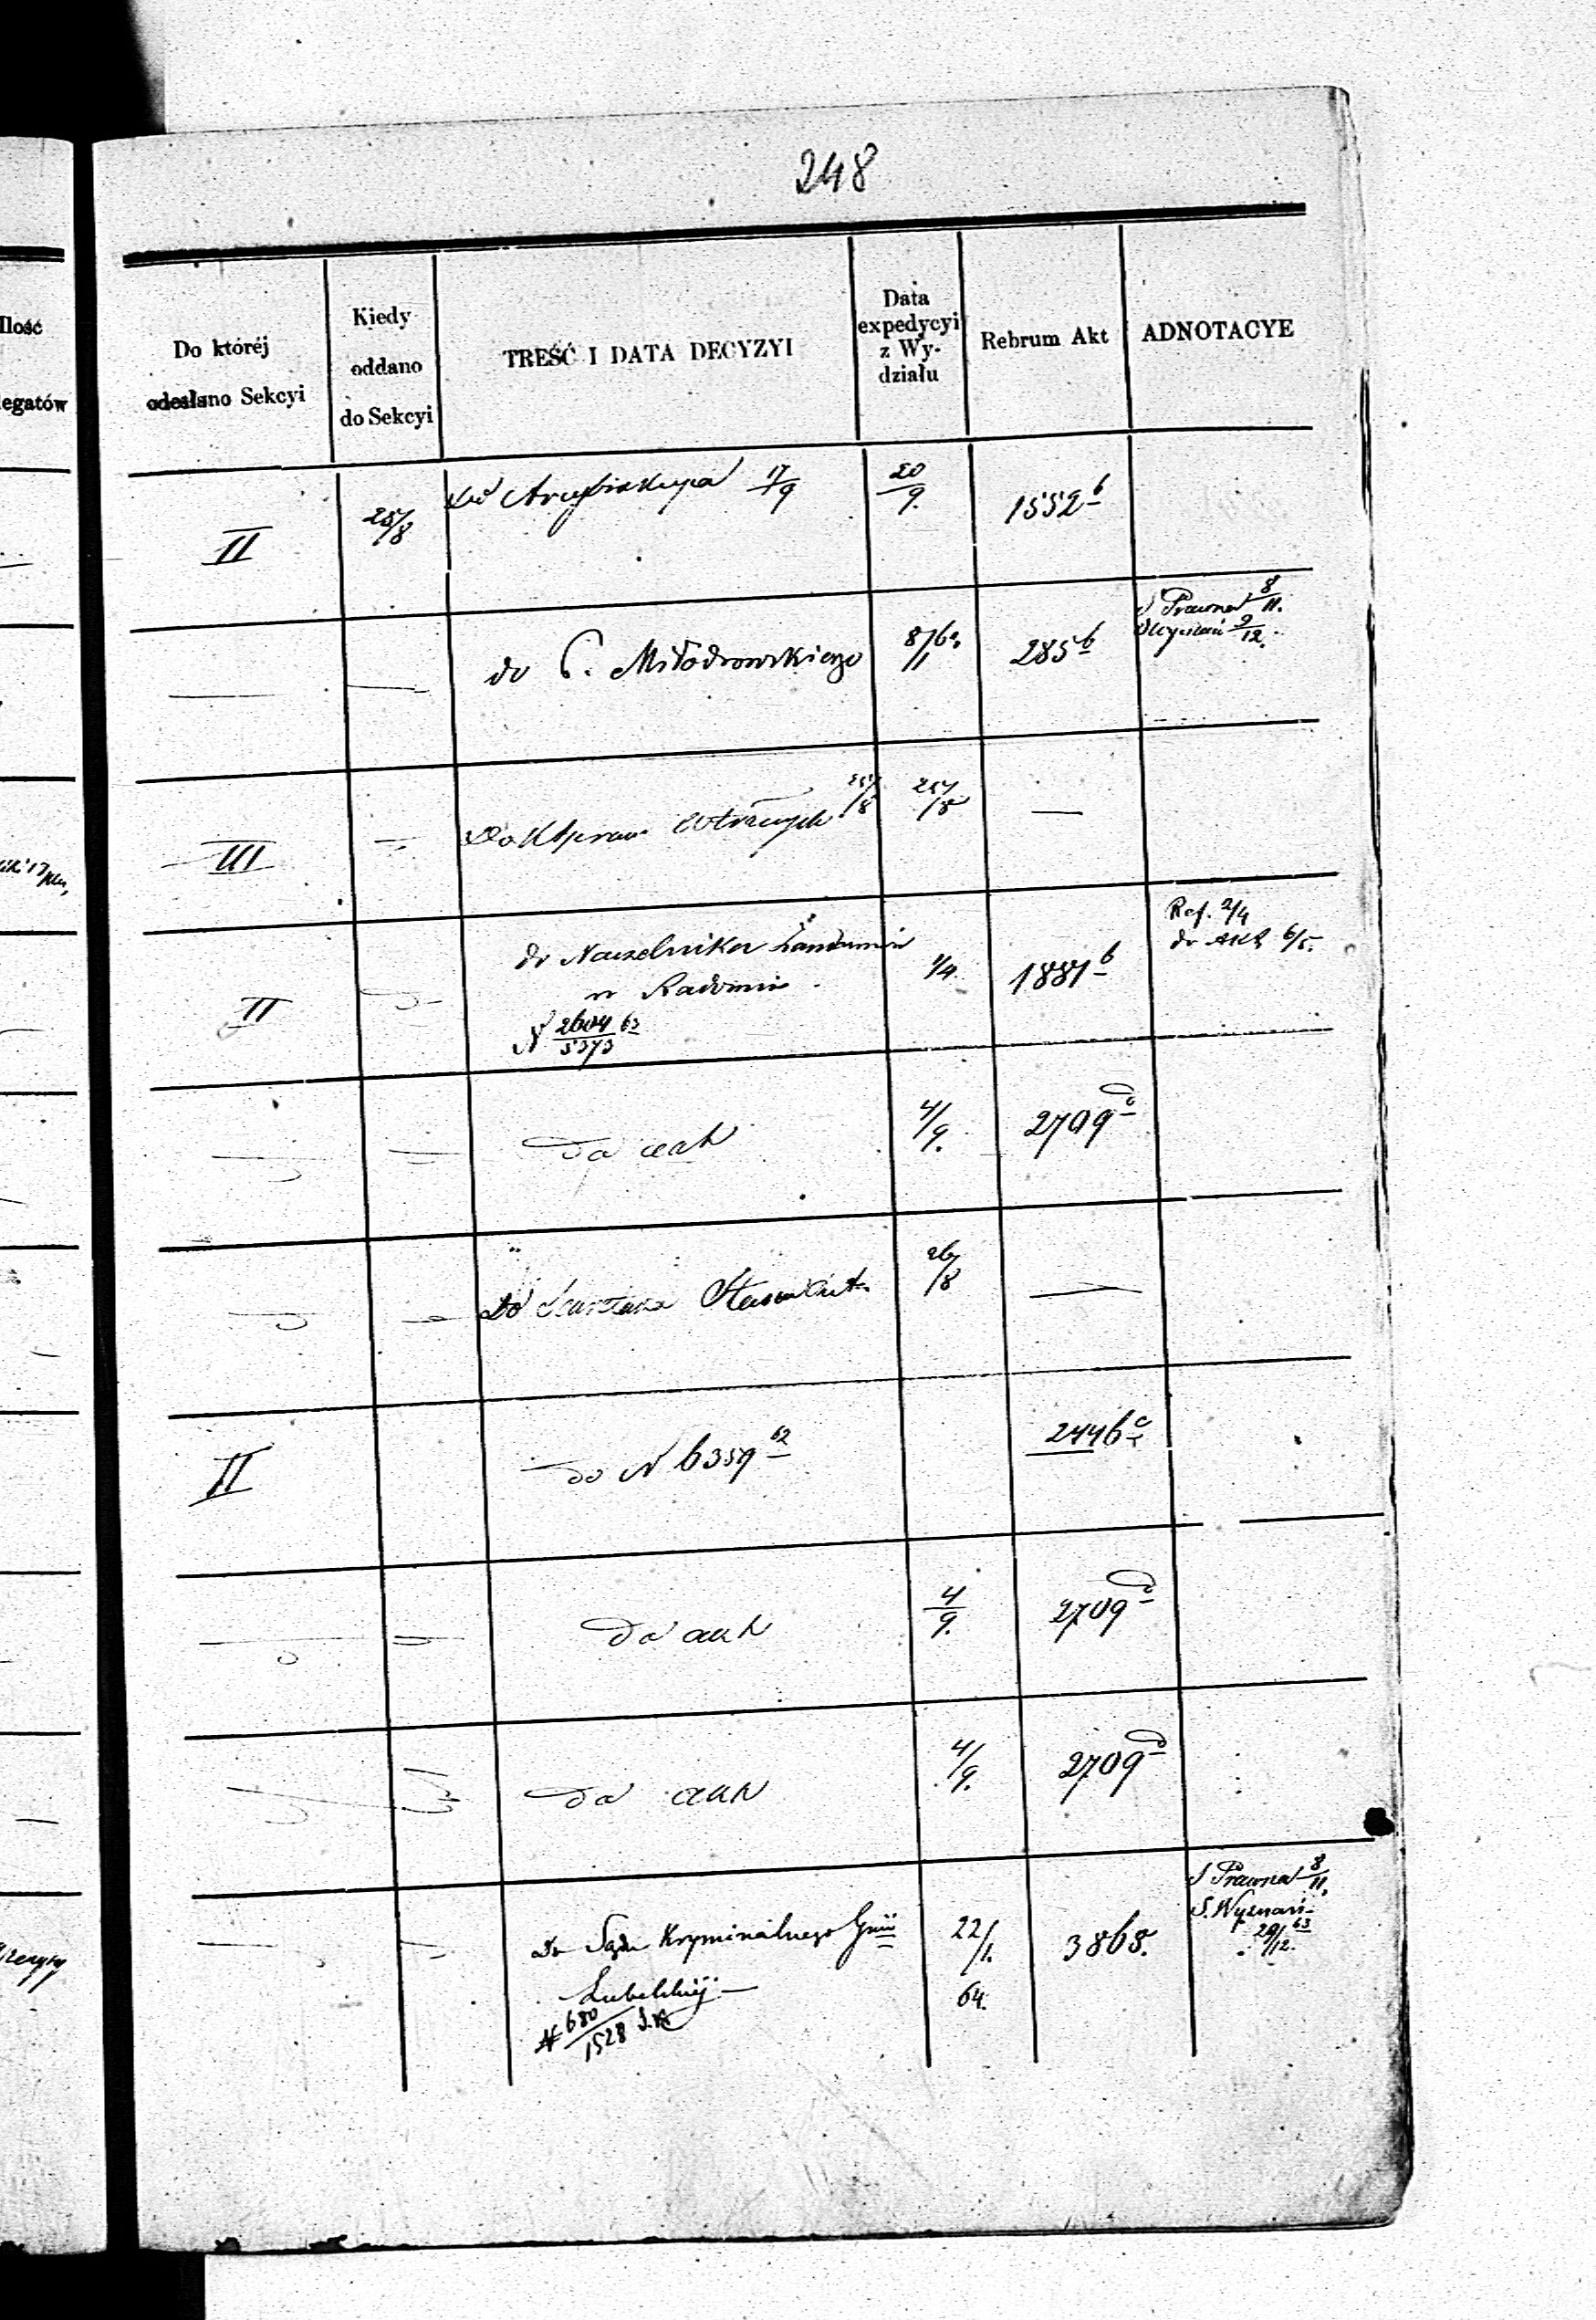 248
Ilość
legatów
Do któréj
odesłano Sekcyi
Kiedy
oddano
do Sekcyi
TREŚĆ I DATA DECYZYI
Data
expedycyi
z Wy-
działu
Rebrum Akt
ADNOTACYE
II
25/8
Do Arcybiskupa 17/9
20/9.
1552 b
do P. Miłodrowskiego
8/11 63
285 b
S Prawna 8/11.
9/12.
III
25/8
25/8
—
II
do Naczelnika
w Radomiu
N 2604/5373 63
1/4
1881 b
Ref. 2/4
do Akt 6/5.
Do akt
4/9.
2709 d
Do
26/8
—
II
do N 6359 62
2446 c
Do akt
4/9.
2709 d
Do akt
4/9.
2709 d
Do Sądu Kryminalnego Gnii
Lubelskiej
N 680/1528
22/1.
64.
3868.
S Prawna 8/11,
S. Wyznań
20/12. 63